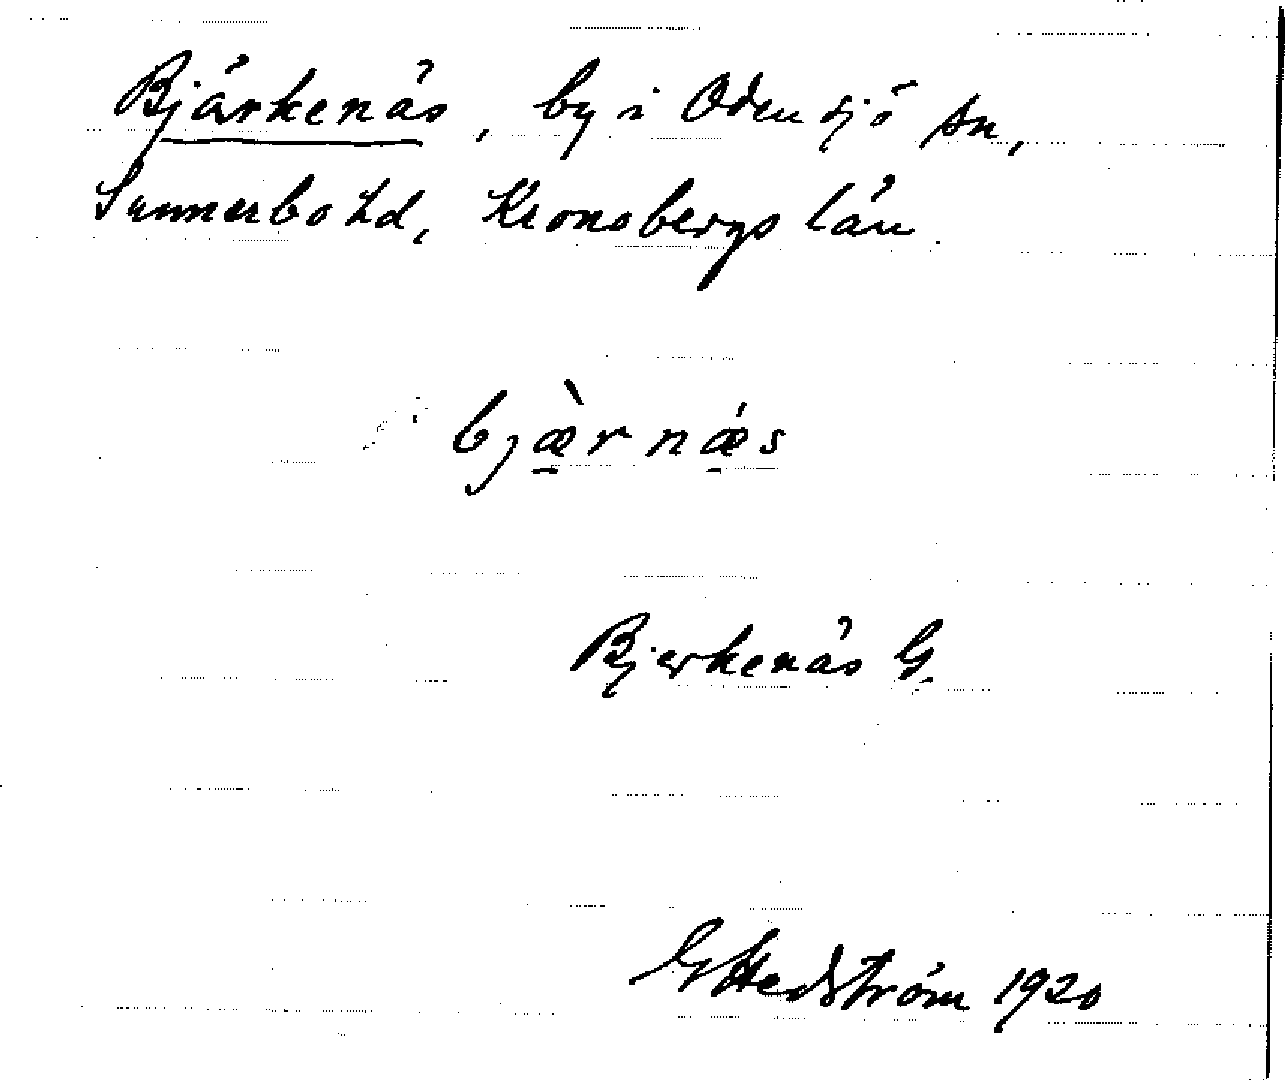 Bjärkenäs, by i Odensjö sn,
Sunnerbo hd, Kronobergs län.
bjæ̠̀rnǽ̠s
Bjerkenäs G.
G Hedström 1920